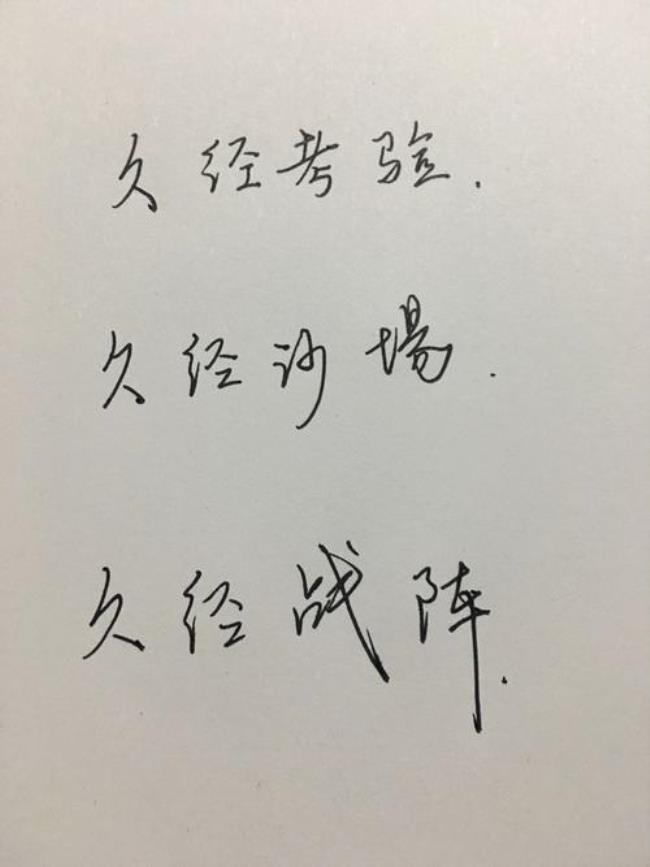 久经考验.
久经沙場.
久经战阵.